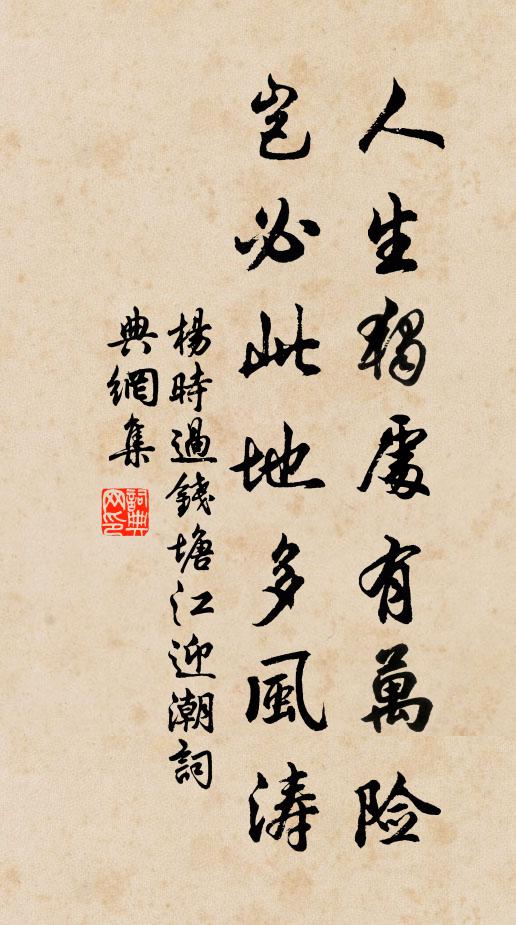 人生觸處有萬險
豈必此地多風濤
楊時過錢塘江迎潮詞
典網集
詞典
网印